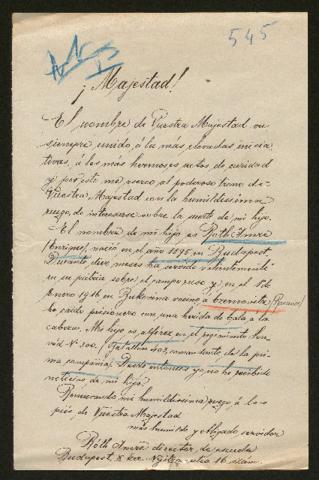 545
¡Majestad!
El nombre de Vuestra Majestad va
siempre unido á las más elevadas inicia
tivas, á los más hermosos actos de caridad
y por esto me acerco al poderoso trono de
Vuestra Majestad con la humildísima
ruego, de interesarse sobre la suerte de mi hijo.
El nombre de mi hijo es Róth Imre
(Enrique), nació en el año 1895 en Budapest.
Durante doce meses ha servido valientemente
en su patria sobre el campo ruso y en el 1 de
Enero 1916 en Bukovina cerca á Czernowitz
ha caído prisionero con una herida de bala a la
cabeza. Mi hijo es alferez en el regimiento hon
véd No 300. batallón
campañia. Desde entonces yo no he recibido
noticias de mi hijo.
Renovando mi humildísimo ruego á los
piés de Vuestra Majestad
más humilde y servidor
Róth Imre director de escuela
Budapest, X ker. utca 16 szám.